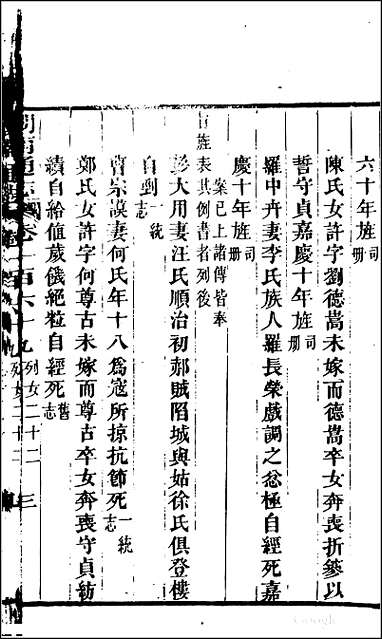 六十年旌 司册
陳氏女許字劉德嵩未嫁而德嵩卒女奔喪折簪以
誓守貞嘉慶十年旌 司册
羅中丹妻李氏族人羅長榮戲調之忿極自經死嘉
慶十年旌 司册
案已上諸傳皆奉
旌表其例書者列後
彭大用妻汪氏順治初郝賊陷城與姑徐氏俱登樓
自剄 一統志
曹宗謨妻何氏年十八爲寇所掠抗節死 一統志
鄭氏女許字何尊古未嫁而尊古卒女奔喪守貞紡
績自給值歲饑絕粒自經死 舊志
通志 卷一百六十九 列女二十二 三